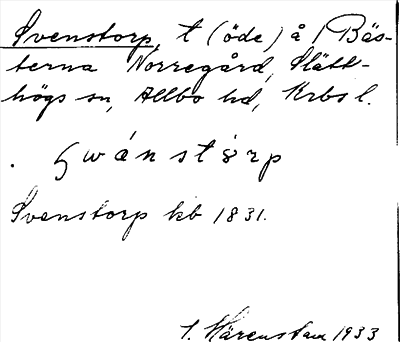 Svenstorp, t (öde) å 1 Bäs-
terna Norregård, Slätt-
högs sn, Allbo hd, Krbs l.
. swánstòrp
Svenstorp kb 1831.
S. Härenstam 1933